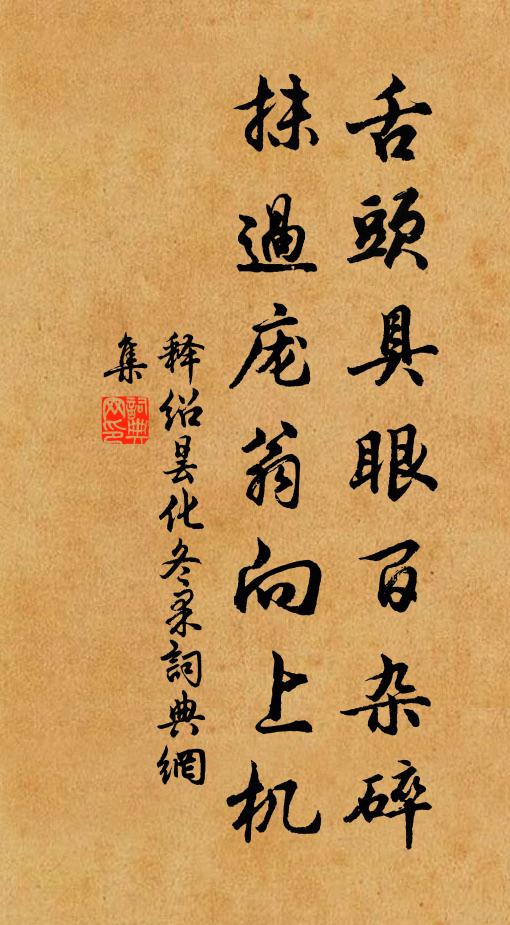 舌頭具眼百杂碎
抹過庞翁向上机
释绍昙化冬采詞典網
集
詞典网印